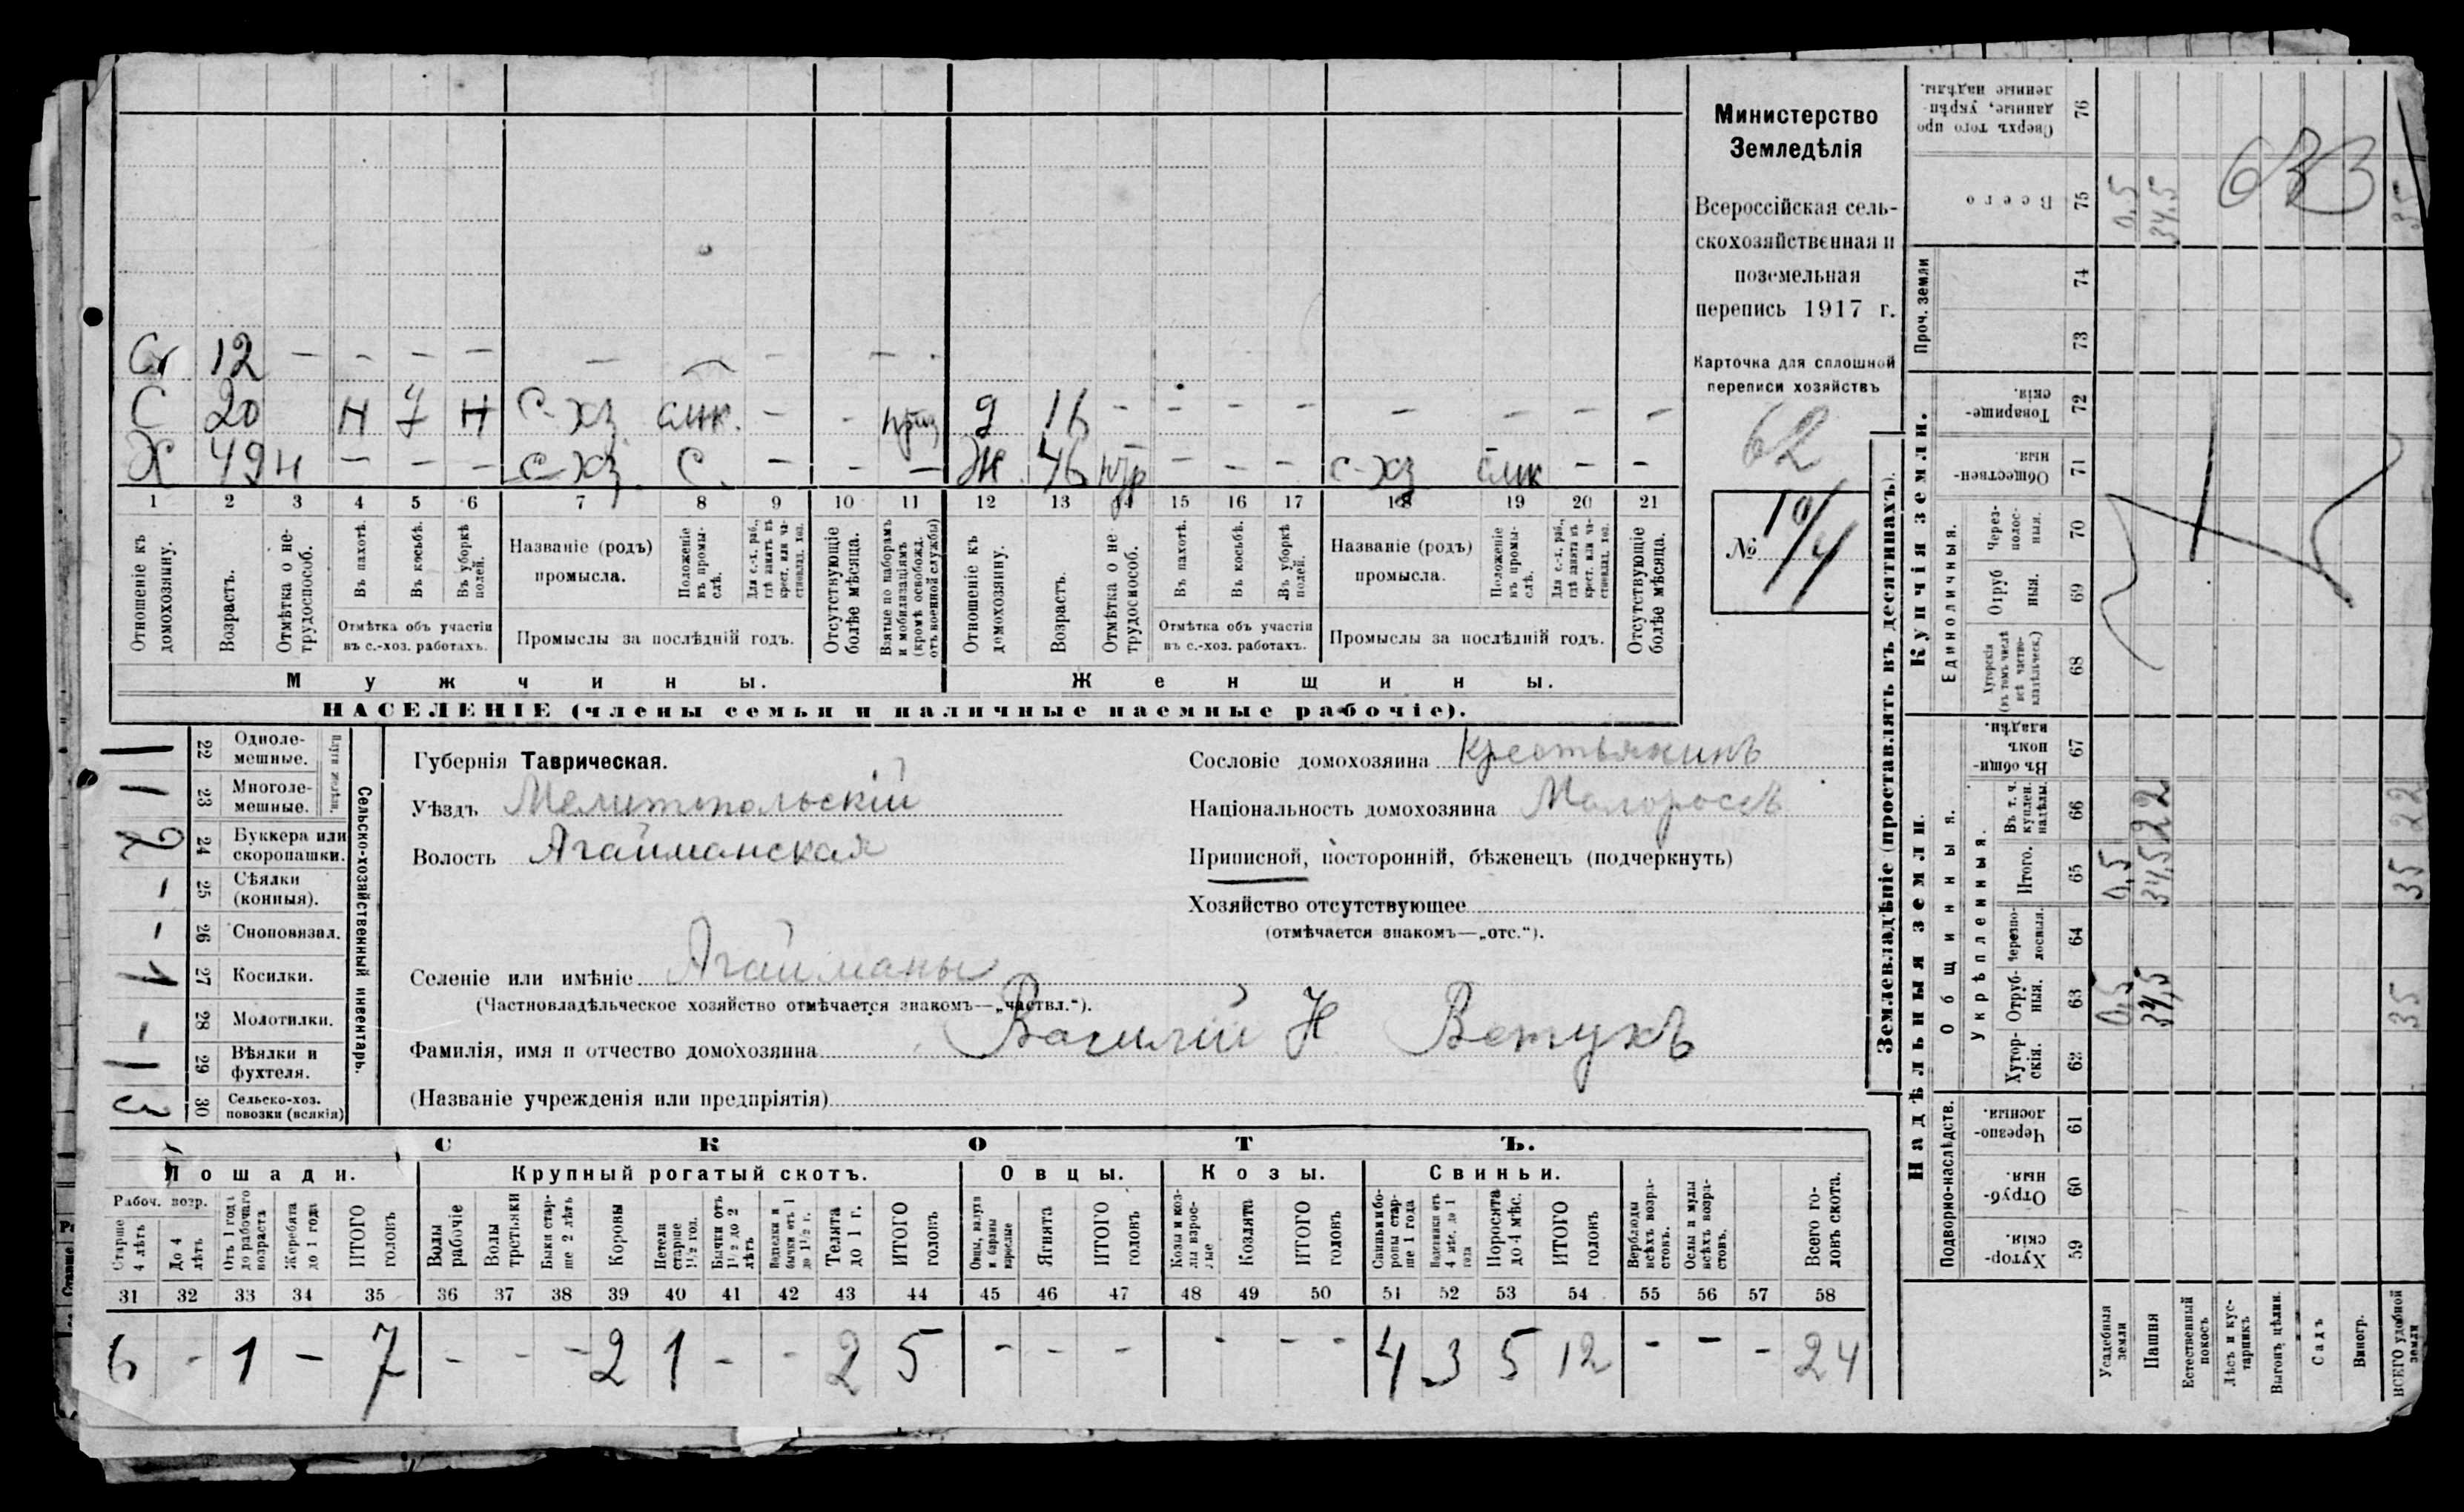 Министерство
Земледѣлія
Всероссійская сель-
скохозяйственная и
поземельная
перепись 1917 г.
Карточка для сплошной
переписи хозяйствъ
62
№ 10/4
Сг 12 – – – – – – – –
С 20 Н 7 Н С-хз слж. – – приз д 16 – – – – – – – –
Х 49 н – – – с-хз С. – – – Ж 46 с-хз – –
1 2 3 4 5 6 7 8 9 10 11 12 13 14 15 16 17 18 19 20 21
Отношеніе къ домохозяину.
Возрастъ.
Отмѣтка о не-трудоспособ.
Въ пахотѣ.
Въ косьбѣ.
Въ уборкѣ полей.
Отмѣтка объ участіи
въ с.-хоз. работахъ.
Названіе (родъ)
промысла.
Положеніе въ промы-слѣ.
Для с.-х. раб., гдѣ занятъ въ крест. или ча-стновлад. хоз.
Промыслы за послѣдній годъ.
Отсутствующіе болѣе мѣсяца.
Взятые по наборамъ и мобилизаціямъ (кромѣ освобожд. отъ военной службы)
Отношеніе къ домохозяину.
Возрастъ.
Отмѣтка о не трудоспособ.
Въ пахотѣ.
Въ косьбѣ.
Въ уборкѣ полей.
Отмѣтка объ участіи
въ с.-хоз. работахъ.
Названіе (родъ)
промысла.
Положеніе въ промы-слѣ.
Для с.-х. раб., гдѣ занята въ крест. или ча-стновлад. хоз.
Промыслы за послѣдній годъ.
Отсутствующіе болѣе мѣсяца.
Мужчины. Женщины.
НАСЕЛЕНІЕ (члены семьи и наличные наемные рабочіе).
Сельско-хозяйственный инвентарь.
Плуги желѣзн.
1 22 Одноле-мешные.
1 23 Многоле-мешные.
2 24 Буккера или скоропашки.
– 25 Сѣялки (конныя).
– 26 Сноповязал.
1 27 Косилки.
– 28 Молотилки.
1 29 Вѣялки и фухтеля.
3 30 Сельско-хоз. повозки (всякія)
Губернія Таврическая.
Уѣздъ Мелитопольскій
Волость Агайманская
Селеніе или имѣніе Агайманы
(Частновладѣльческое хозяйство отмѣчается знакомъ—„частвл.“).
Фамилія, имя и отчество домохозяина Василій Н Ветухъ
(Названіе учрежденія или предпріятія)
Сословіе домохозяина Крестьянинъ
Національность домохозяина Малороссъ
Приписной, посторонній, бѣженецъ (подчеркнуть)
Хозяйство отсутствующее
(отмѣчается знакомъ—„отс.“).
СКОТЪ.
Лошади. Крупный рогатый скотъ. Овцы. Козы. Свиньи.
Рабоч. возр.
Старше 4 лѣтъ
До 4 лѣтъ
Отъ 1 года до рабочаго возраста
Жеребята до 1 года
ИТОГО головъ
Волы рабочіе
Волы третьяки
Быки стар-ше 2 лѣтъ
Коровы
Нетели старше 1½ год.
Бычки отъ 1½ до 2 лѣтъ
Телята до 1 г.
ИТОГО головъ
Ягнята
ИТОГО головъ
Козлята
ИТОГО головъ
Поросята до 4 мѣс.
ИТОГО головъ
Верблюды всѣхъ возра-стовъ.
Ослы и мулы всѣхъ возра-стовъ.
Всего го-ловъ скота.
31 32 33 34 35 36 37 38 39 40 41 42 43 44 45 46 47 48 49 50 51 52 53 54 55 56 57 58
6 – 1 – 7 – – – 2 1 – – 2 5 – – – – – – 4 3 5 12 – – – 24
Землевладѣніе (проставлять въ десятинахъ).
Надѣльныя земли. Купчія земли.
Подворно-наслѣдств.
Общинныя.
Укрѣпленныя.
Единоличныя.
Проч. земли
Хутор-скія. 59
Отруб-ныя. 60
Черезпо-лосныя. 61
Хутор-скія. 62
Отруб-ныя. 63
Черезпо-лосныя. 64
Итого. 65
Въ т. ч. куплен. надѣлы. 66
Въ общи-номъ владѣн. 67
Хуторскія (въ томъ числѣ всѣ частно-владѣльческ.) 68
Отруб ныя. 69
Через-полос-ныя. 70
Обществен-ныя. 71
Товарище-скія. 72
73
74
Всего 75
Сверхъ того про данные, укрѣп-ленные надѣлы. 76
Усадебныя земли 0,5 0,5 0,5
Пашня 34,5 34,5 22 34,5
Естественный покосъ
Лѣсъ и кус-тарникъ
Выгонъ, цѣлин.
Садъ
Виногр.
ВСЕГО удобной земли 35 35 22 35
633